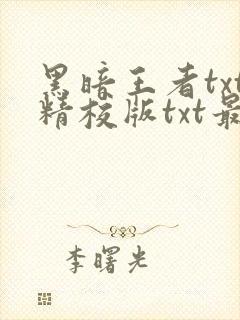 黑暗王者txt
精校版txt最
李曙光